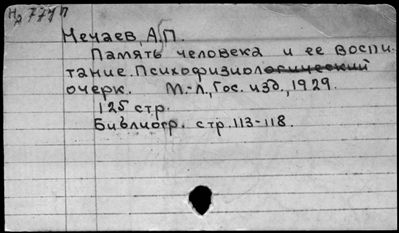 Нечаев, А.П.
Память человека и ее воспи-
тание. Психофизиологический
очерк. М.-Л., Гос. изд., 1929.
125 стр.
Библиогр. стр. 113-118.